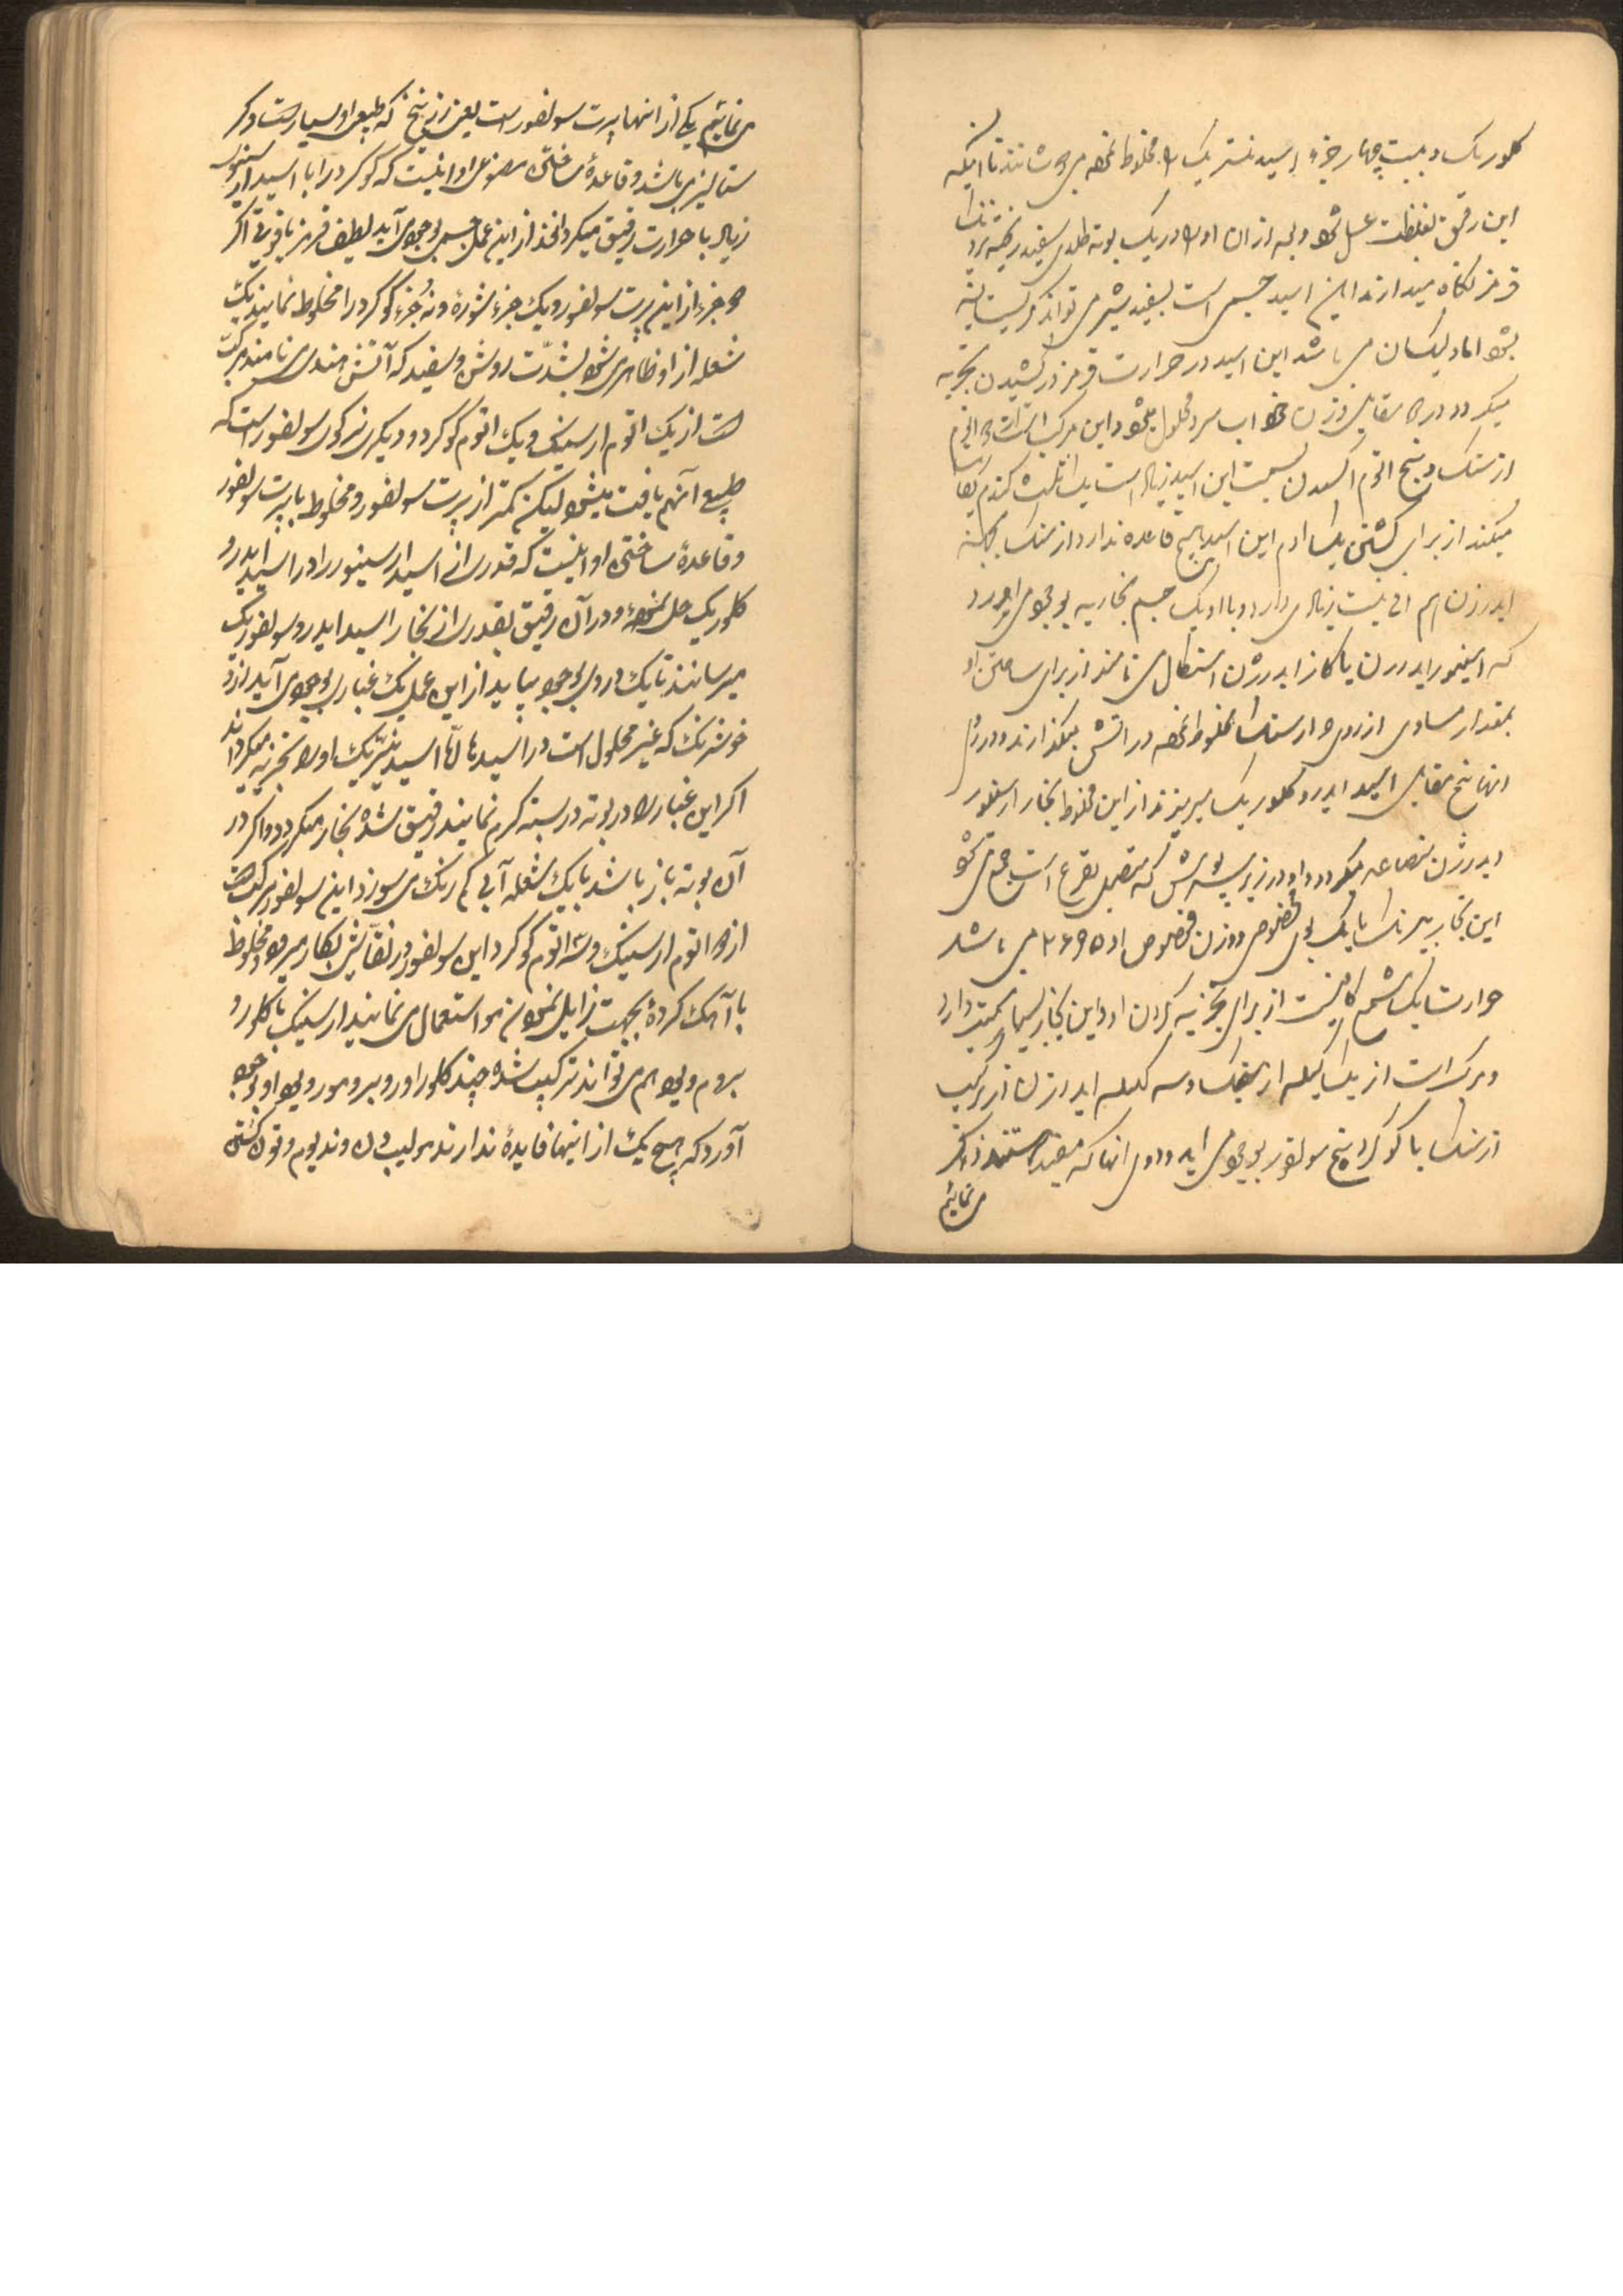 کلوریک و بیست چهار جزء اسید نتریک را مخلوط نموده می جوشانند تا اینکه
این رقیق بغلظت عسل شود و بعد از ان او را در یک بوته طلای سفید ریخته برنگ
قرمز نگاه میدارند این اسید جسمی است سفید شیری می تواند کریستالیزه
بشود اما دلیکسان می باشد این اسید در حرارت قرمز درکشیدن تجزیه
میگردد در مقابل وزن خود اب سرد محلول میشود و این مرکب است از دو اتوم
ارسنیک و پنج اتوم اکسیژن سمیت این اسید زیاد است یک گندم کفایت
میکند از برای کشتن یک ادم این اسید هیچ قاعده ندارد ارسنیک بجانب
ایدرژن هم الفیتت زیادی دارد و با او یک جسم بخاریه بوجود می اورد
که ارسنیور ایدرژن یا گاز ایدرژن ارسنکال می نامند از برای ساختن او
بمقدار مساوی از روی و ارسنیک مخلوط نموده در اتش میگذارند و در روی
انها پنج مقابل اسید ایدرو کلوریک میریزند از این مخلوط بخار ارسنیور
ایدرژن متصاعد میگردد و او در زیر سرپوش که متصل بقرع است جمع می شود
این بخار بیرنگ با یک بوی مخصوص و وزن مخصوص او ۲۶۹۵ می باشد
حرارت یک شمع کافیست از برای تجزیه کردن او و این بخار بسیار سمیت دارد
و مرکب است از یک کیله ارسنیک و سه کیله ایدرژن از ترکیب
ارسنیک با گوگرد پنج سولفور بوجود می اید و دوی انها که مفید هستند ذکر
می نمائیم
می نمائیم یکی از انها پرت سولفور است یعنی زرنیخ که طبیعی او بسیار است و کر
ستالیزی باشد و قاعده ساختن مصنوعی او اینست که گوگرد را با اسید ارسنیور
زیاد با حرارت رقیق میگردانند از این عمل جسمی بوجود می آید لطیف قرمز یاقوتی اگر
دو جزء از این پرت سولفور و یک جزء شوره و نه جزء گوگرد را مخلوط نمایند یک
شعله از او ظاهر می شود بشدّت روشن و سفید که آتش هندی می نامند مرکّب
است از یک اتوم ارسنیک و یک اتوم گوگرد و دیگری ترکوی سولفور است که
طبیعی آنهم یافت میشود لیکن کمتر از پرت سولفور و مخلوط با پرت سولفور
و قاعدهٔ ساختن او اینست که قدری از اسید ارسینور را در اسید ایدرو
کلوریک حل نموده و در آن رقیق بقدری از بخار اسید ایدرو سولفوریک
میرسانند تا یک دردی بوجود بیاید از این عمل یک غباری بوجود می آید زرد
خوشرنگ که غیر محلول است در اسیدها الّا اسید نیتریک او را تجزیه میگرداند
اگر این غبار را در بوته دربسته گرم نمایند رقیق شده بخار میگردد و اگر در
آن بوته باز باشد با یک شعله آبی کم رنگ می سوزد این سولفور مرکب است
از دو اتوم ارسنیک و سه اتوم گوگرد این سولفور در نقّاشی بکار میرود و مخلوط
با آهک کرده بجهت زایل نمودن مو استعمال می نمایند ارسنیک با کلور و
بروم و یود هم می تواند ترکیب شده چند کلور اور و برومور و یود او بوجود
آورد که هیچ یک از اینها فایدهٔ ندارند مولیب دن و ندیوم و تونکستن